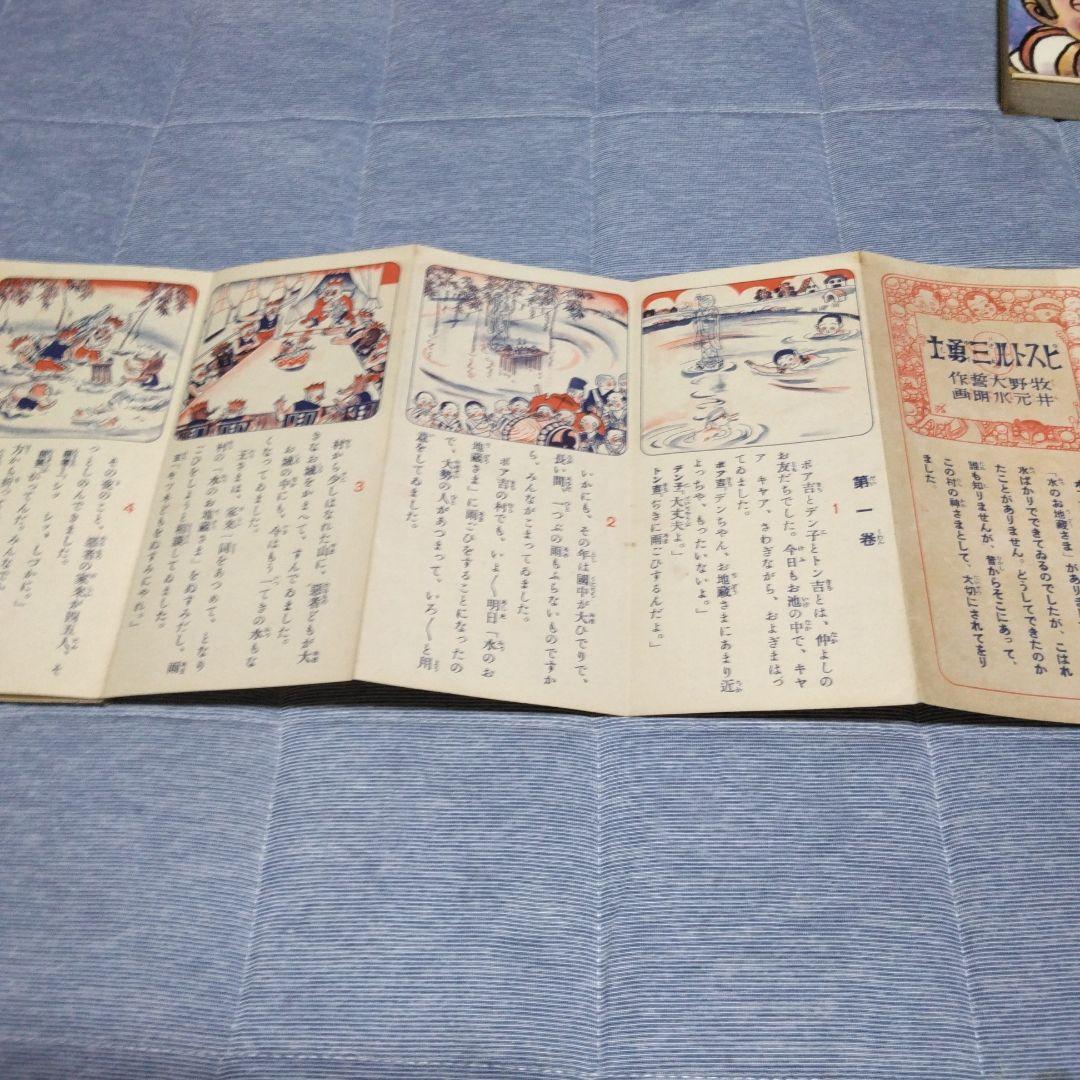 ピストル三勇士
牧野大誓作
井元水明画
「水のお地蔵さま」がありま
水ばかりでできてゐるのでしたが、こはれ
たことがありません。どうしてできたのか
誰も知りませんが、昔からそこにあつて、
この村の神さまとして、大切にされてをり
ました。
第一卷
1
ポア吉とデン子とトン吉とは、仲よしの
お友だちでした。今日もお池の中で、キヤ
ア キヤア、さわぎながら、およぎまはつ
てゐました。
ポア吉「デンちやん、お地蔵さまにあまり近
よつちや、もつたいないよ。」
デン子「大丈夫よ。」
トン吉「ぢきに雨ごひするんだよ。」
2
いかにも、その年は國中が大ひでりで、
長い間、一つぶの雨もふらないものですか
ら、みんながこまつてゐました。
ポア吉の村でも、いよ〱明日「水のお
地蔵さま」に雨ごひをすることになつたの
で、大勢の人があつまつて、いろ〱と用
意をしてゐました。
3
村から少しはなれた山に、惡者どもが大
きなお城をかまへて、すんでゐました。
お城の中にも、今はもう一てきの水もな
くなつてゐました。
王さまは、家來一同をあつめて、となり
村の「水のお地蔵さま」をぬすみだし、雨
ごひをしようと相談してゐました。
王「キッネどもをぬすみにやれ。」
4
その夜のこと。惡者の家來が四五人、そ
つとしのんできました。
「シッ シッ、しづかに。」